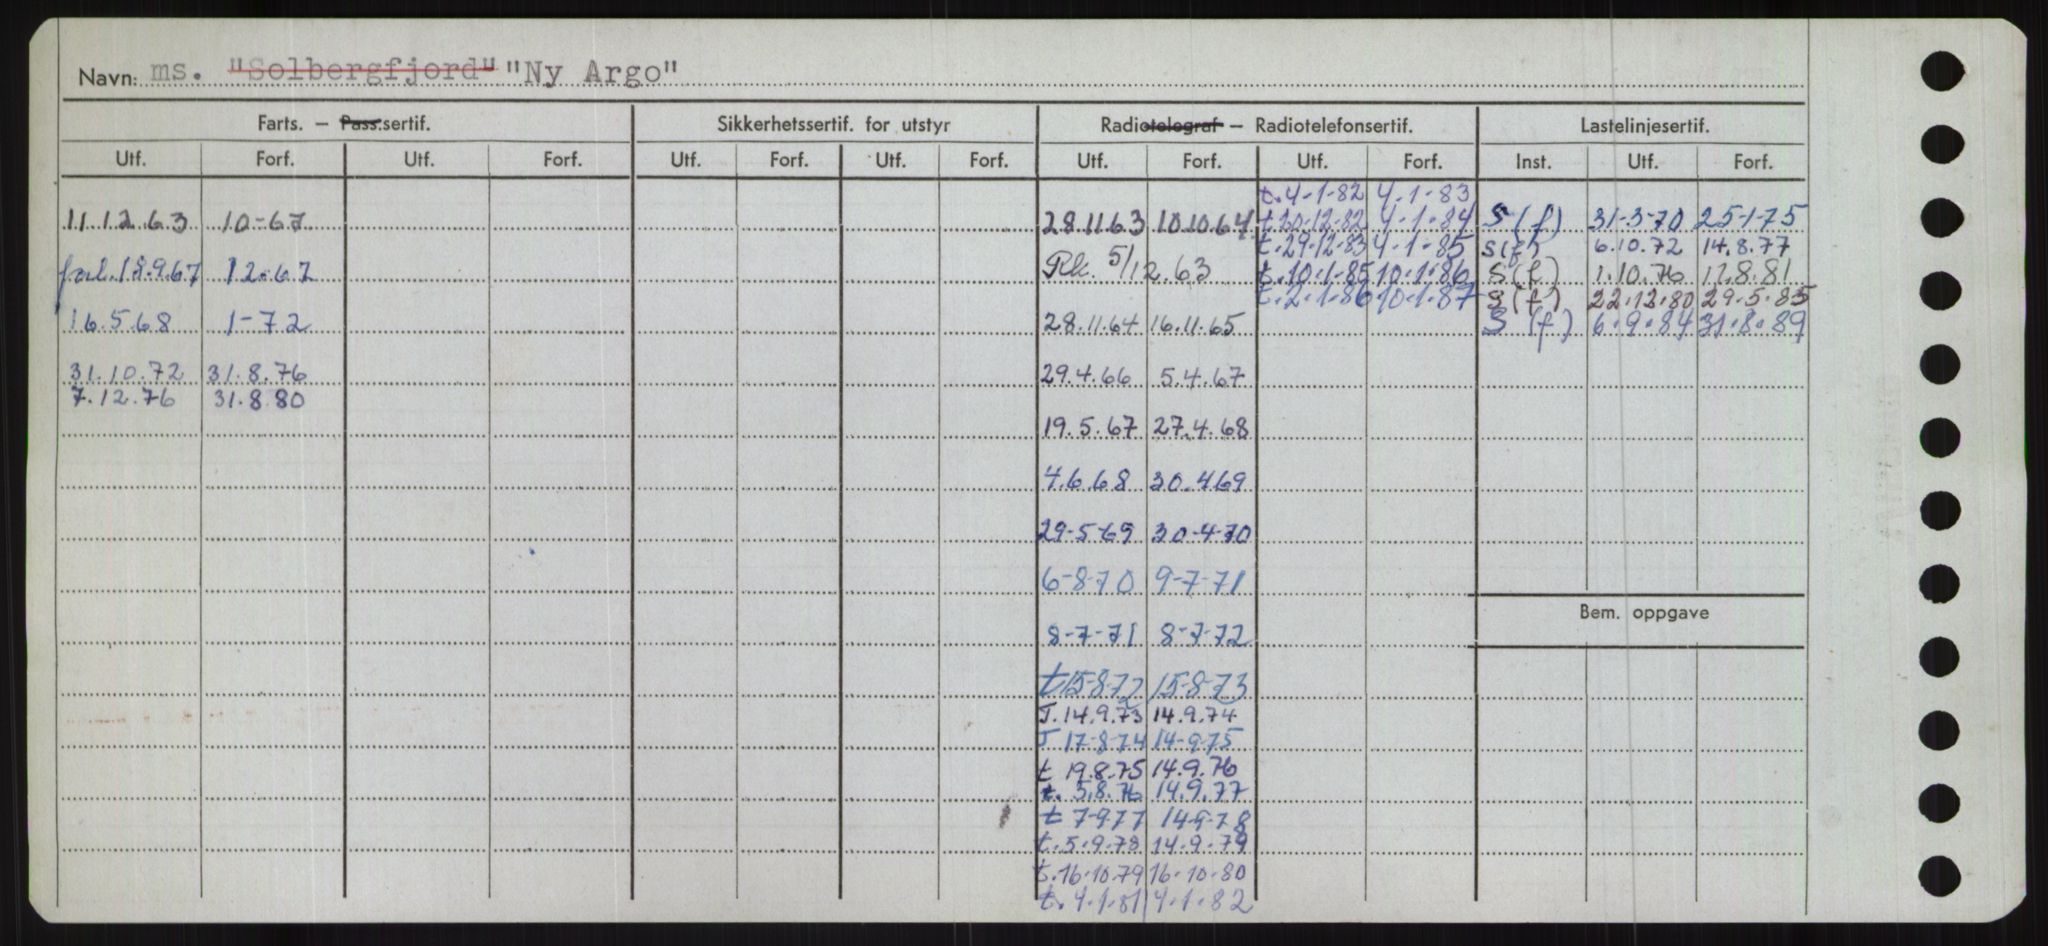 Navn: ms. "Solbergfjord" "Ny Argo"
Farts. – Pass.sertif. Sikkerhetssertif. for utstyr Radiotelegraf – Radiotelefonsertif. Lastelinjesertif.
Utf. Forf. Utf. Forf. Utf. Forf. Utf. Forf. Utf. Forf. Utf. Forf. Inst. Utf. Forf.
t. 4-1-82 4.1.83
11.12.63 10-67 28.11.63 10.10.64 t.20.12.82 4-1-84 S (f) 31-3-70 25-1-75
t.29.12.83 4-1-85 S(f) 6.10.72 14.8.77
forl. 18.9.67 12.67 Rk. 5/12.63 t.10.1.85 10.1.86 S(f) 1.10.76 17.8.81
t.2.1.86 10.1.87 S(f) 22.12.80 29.5.85
16.5.68 1-72 28.11.64 16.11.65 S (f) 6.9.84 31.8.89
31.10.72 31.8.76 29.4.66 5.4.67
7.12.76 31.8.80
19.5.67 27.4.68
4.6.68 30.4.69
29-5-69 30-4-70
6-8-70 9-7-71
Bem. oppgave
8-7-71 8-7-72
t 15-8-72 15-8-73
T. 14.9.73 14.9.74
T 17-8-74 14-9-75
t 19.8.75 14.9.76
t. 5.8.76 14.9.77
t 7-9-77 14-9-78
t. 5.9.78 14.9.79
t. 16.10.79 16.10.80
t. 4.1.81 4.1.82